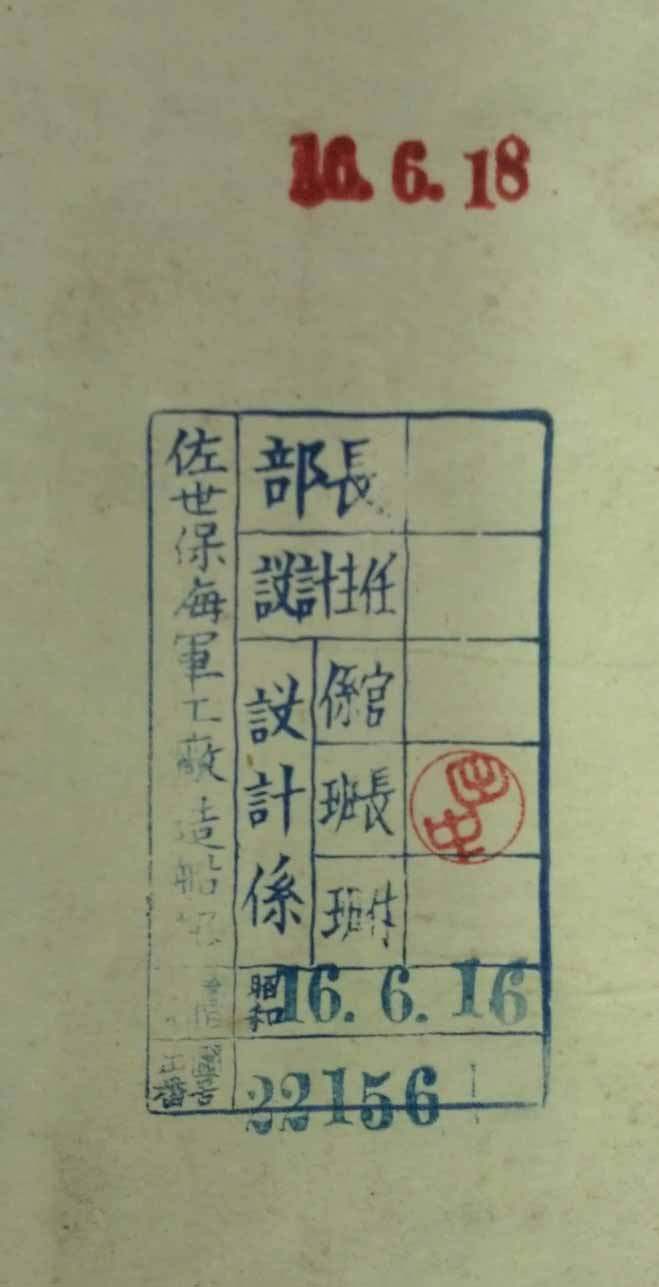 16. 6. 18
佐世保海軍工廠造船部
部長
設計主任
設計係
係官
班長
班付
昭和 16. 6. 16
22156